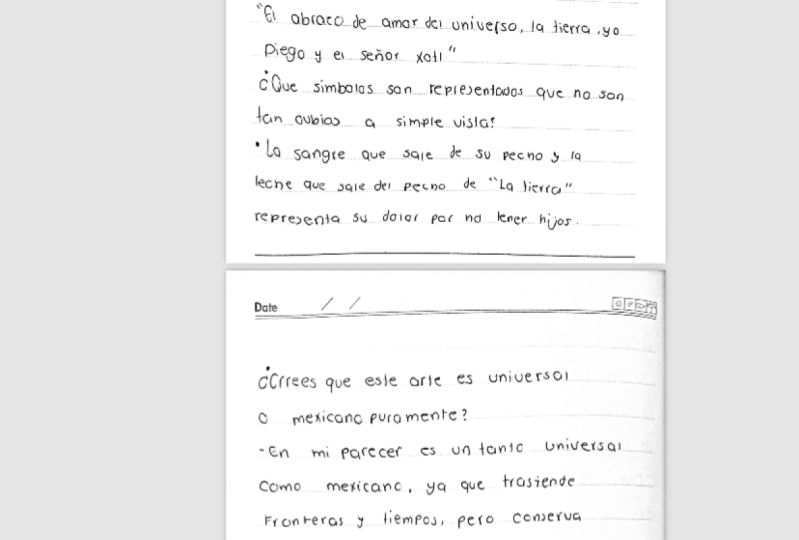 "El abrazo de amor del universo, la tierra, yo
Diego y el señor xotl"
¿Que simbolos son representados que no son
tan oubios a simple vista?
•La sangre que sale de su pecho y la
leche que sale del pecho de "La tierra"
representa su dolor por no tener hijos.
Date / /
¿Crrees que este arte es universal
O mexicano puramente?
-En mi parecer es un tanto universal
Como mexicano, ya que trasiende
Fronteras y tiempos, pero conserva